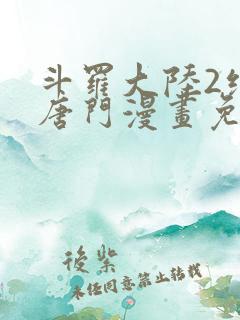 斗羅大陸2
唐門漫畫免
後紫
未经同意禁止转载